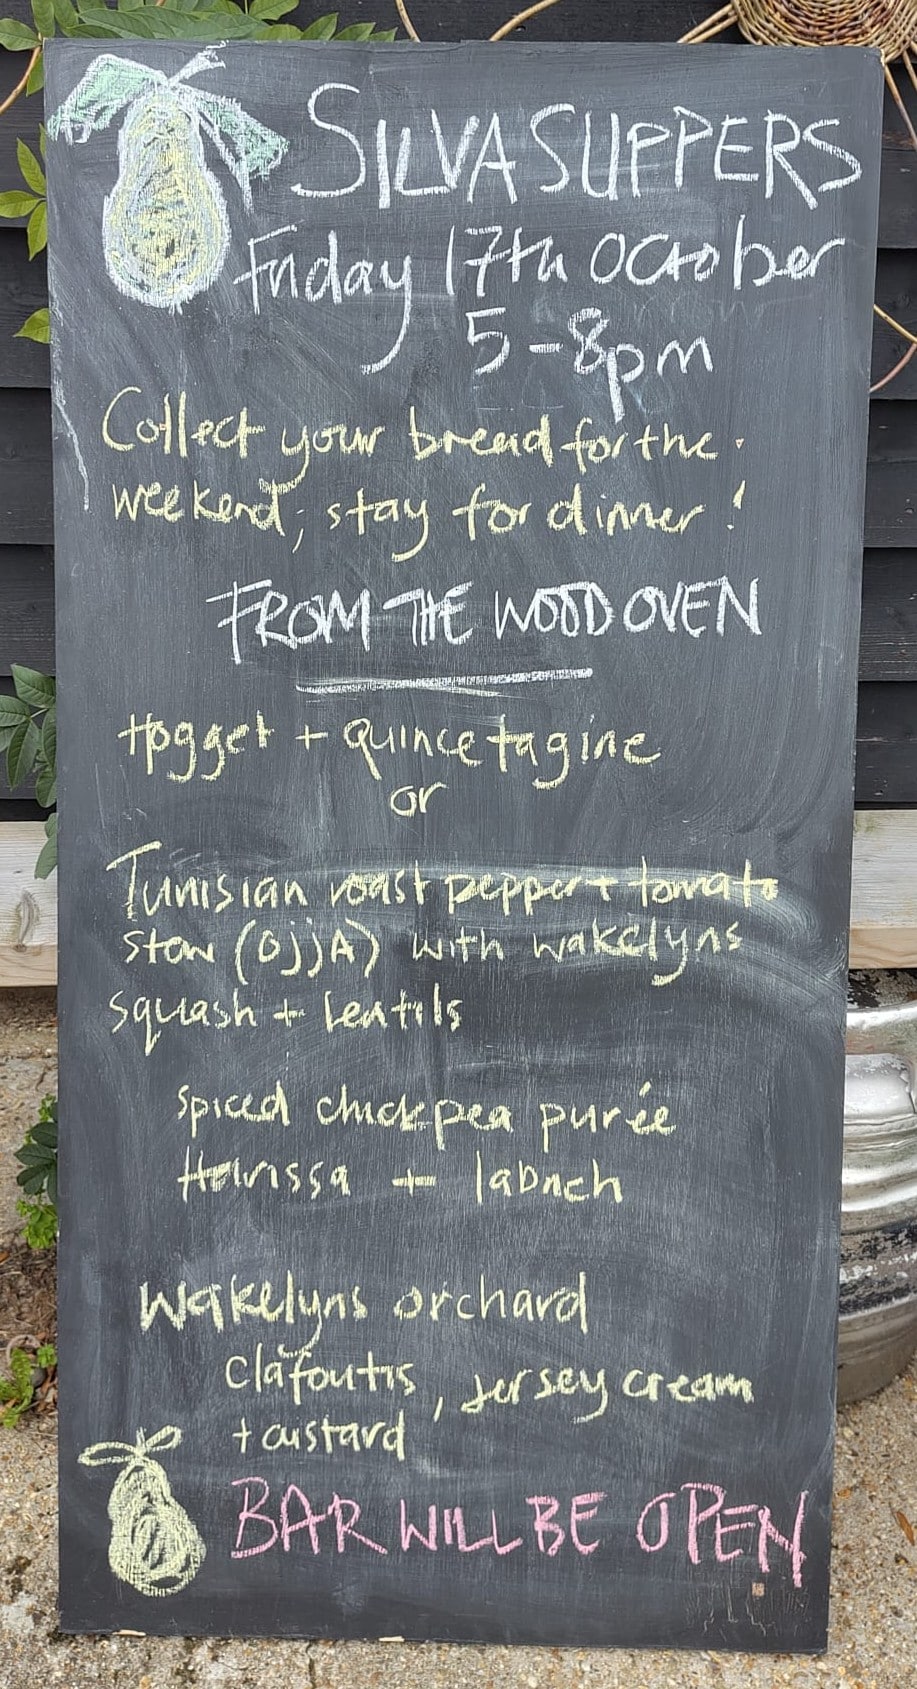 SILVA SUPPERS
Friday 17th October
5-8pm
Collect your bread for the
weekend; stay for dinner!
FROM THE WOOD OVEN
Hogget + quince tagine
or
Tunisian roast pepper + tomato
stew (OjjA) with wakelyns
squash + lentils
spiced chickpea purée
Harissa + labneh
Wakelyns orchard
Clafoutis, Jersey cream
+ custard
BAR WILL BE OPEN